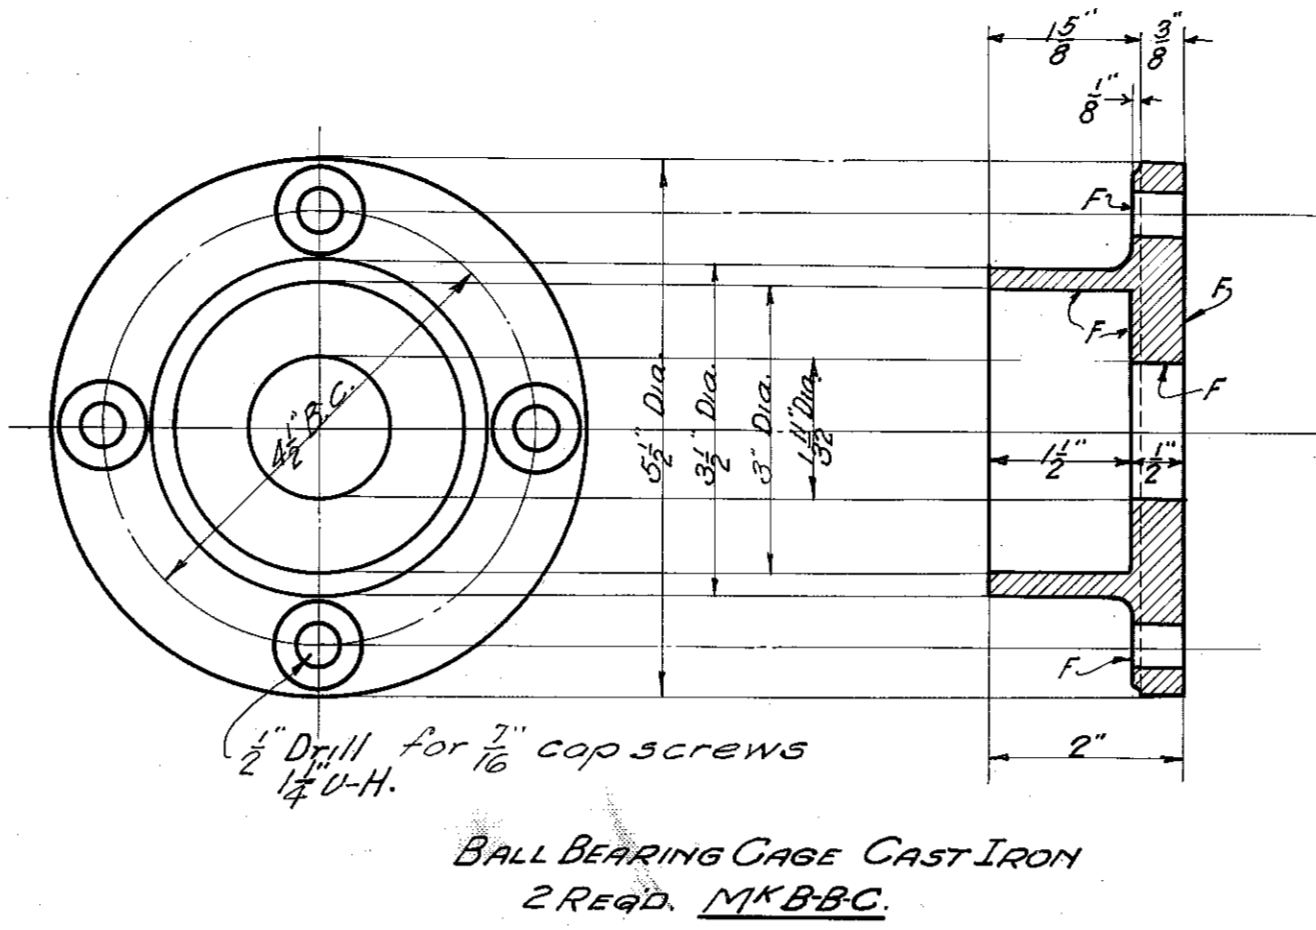 1 5/8"
3/8"
1/8"
F
F
F
F
4 1/2" B.C.
5 1/2" Dia.
3 1/2" Dia.
3" Dia.
1 11/32" Dia.
1 1/2"
1/2"
F
2"
1/2" Drill for 7/16" cap screws
1 1/4" U-H.
BALL BEARING CAGE CAST IRON
2 REQ'D. MK B-B-C.